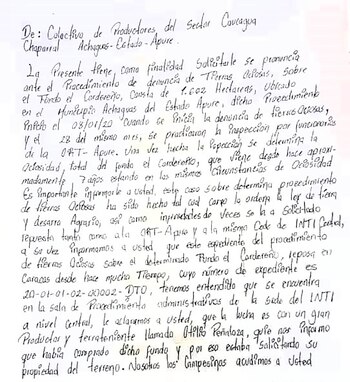 De: Colectivo de Productores del Sector Caucagua
Chaparral Achaguas-Estado-Apure.
La Presente tiene, como finalidad Solicitarle se pronuncia
ante el Procedimiento de denuncia de Tierras Ociosas, Sobre
el Fundo el Cordereño, Consta de 1.602 Hectareas, Ubicado
en el Municipio Achaguas del Estado Apure, dicho Procedimiento
Inicio el 08/01/20 Cuando se inicia la denuncia de tierras Ociosas,
y el 28 del mismo mes, se practicaron la inspección por funcionario
de la ORT-Apure. Una vez hecha la inspección se determina la
Ociosidad, total del fundo el Cordereño, que viene desde hace aproxi-
madamente, 7 años estando en las mismas Circunstancias de Ociosidad
Es importante informarle a usted, este caso sobre determina procedimiento
de tierras Ociosas ha sido hecho tal cual como lo ordena la ley de tierra
y desarro Agrario, así como inumedades de veces se la a solicitado
repuesta tanto como a la ORT-Apure y a la mismo Code de INTI Central,
a su vez informamos a usted que este expediente del procedimiento
de tierras Ociosas sobre el determinado Fundo el Cordereño, reposa en
Caracas desde hace mucho Tiempo, cuyo número de expediente es
20-01-01-02-00002-DTO, tenemos entendido que se encuentra
en la sala de Procedimiento administrativos de la sede del INTI
a nivel central, le aclaramos a usted, que la lucha es con un gran
Productor y terrateniente llamado Otilio Peñaloza, quien nos informo
que había comprado dicho fundo y por eso estaba solicitando su
propiedad del terreno. Nosotros los Campesinos acudimos a Usted